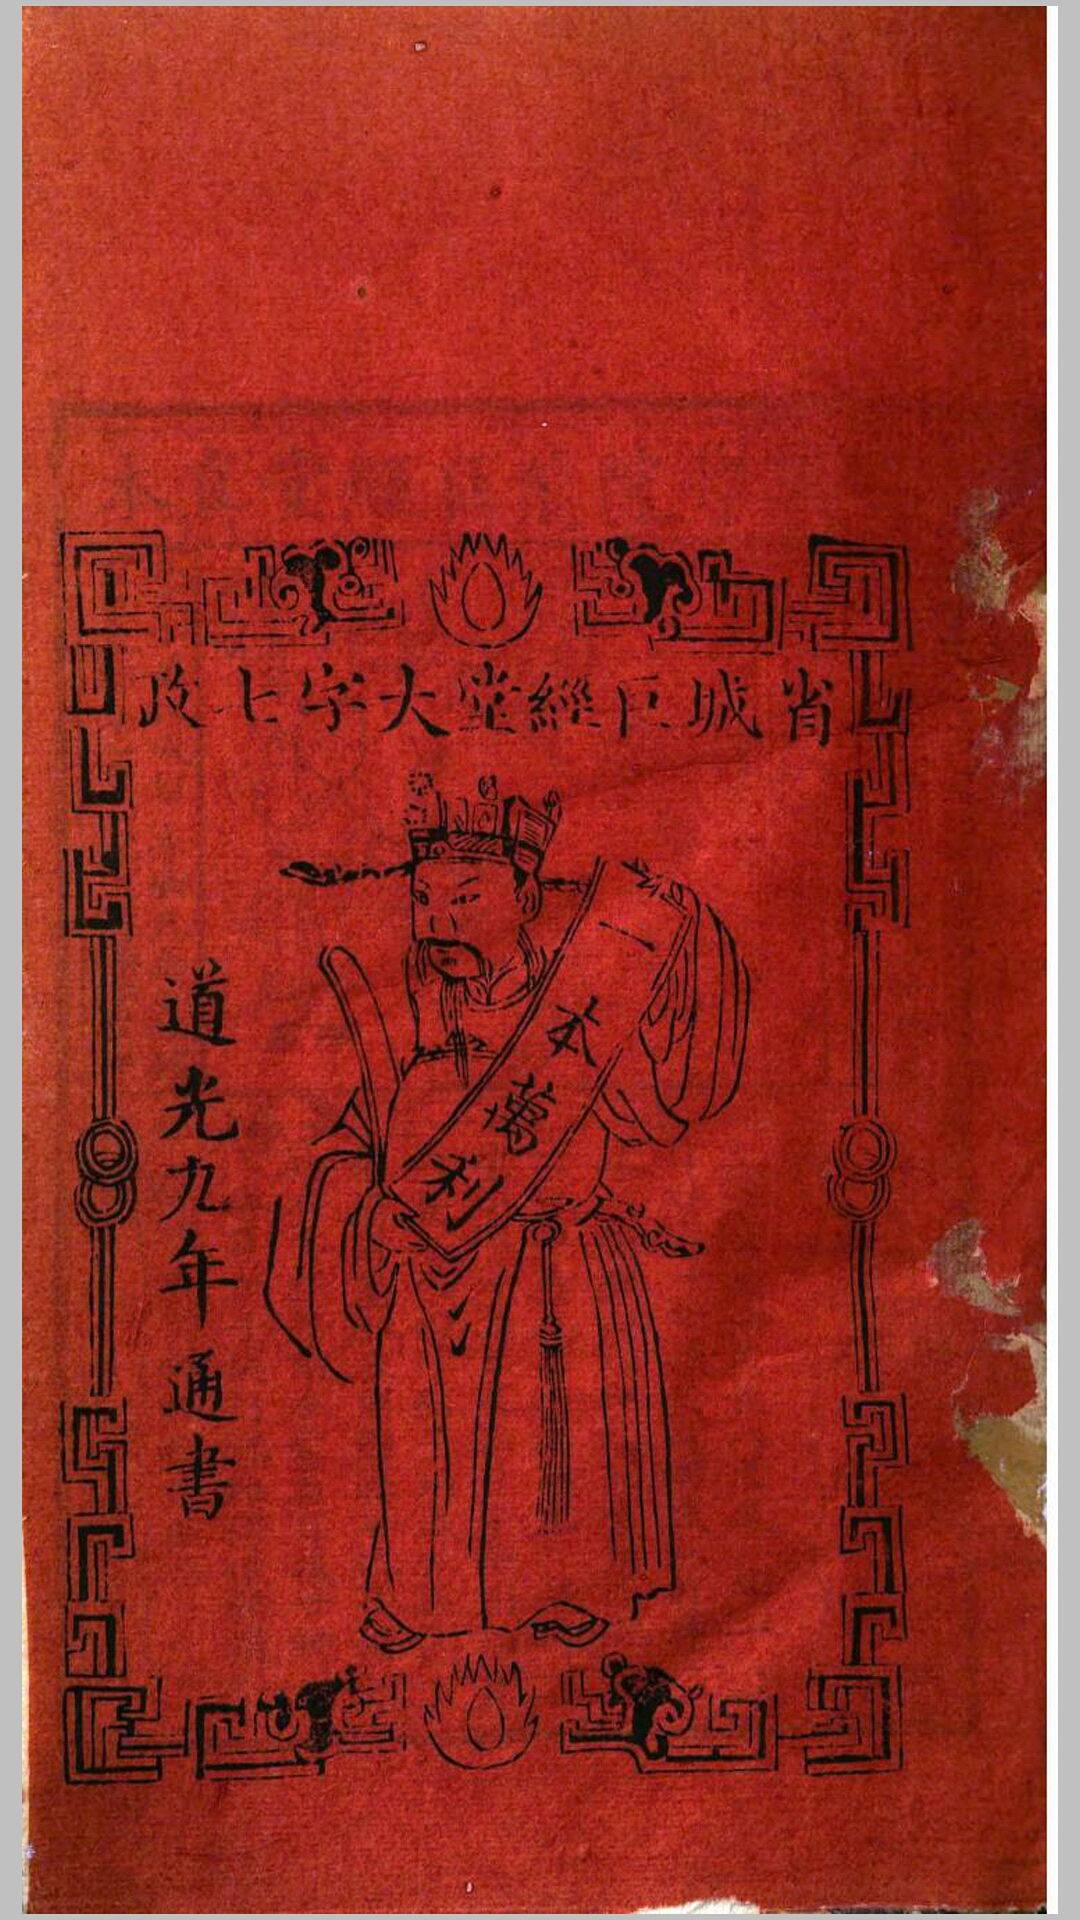 省城巨經堂大字七政
一本萬利
道光九年通書